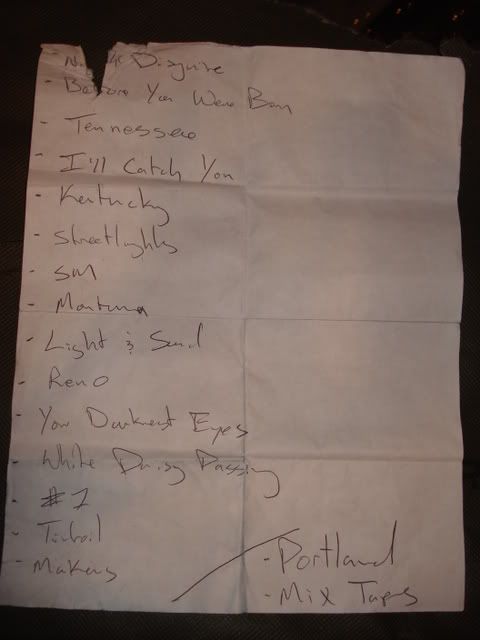 - Disguise
- Before You Were Born
- Tennessee
- I'll Catch You
- Kentucky
- Streetlights
- SM
- Montana
- Light & Sound
- Reno
- Your Darkest Eyes
- White Daisy Passing
- #1
- Tinfoil
- Makers
- Portland
- Mix Tapes